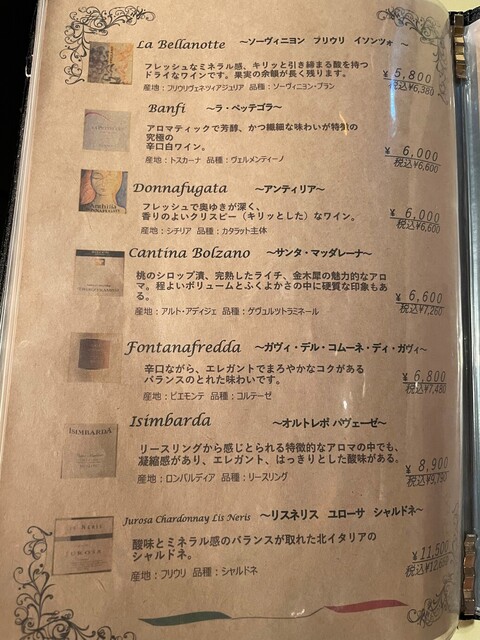 La Bellanotte ～ソーヴィニヨン フリウリ イソンツォ～
フレッシュなミネラル感、キリッと引き締まる酸を持つ
ドライなワインです。果実の余韻が長く残ります。
¥ 5,800
税込¥6,380
産地：フリウリヴェネツィアジュリア 品種：ソーヴィニヨン・ブラン
Banfi ～ラ・ペッテゴラ～
アロマティックで芳醇、かつ繊細な味わいが特徴の
究極の
辛口白ワイン。
¥ 6,000
税込¥6,600
産地：トスカーナ 品種：ヴェルメンティーノ
Donnafugata ～アンティリア～
フレッシュで奥ゆきが深く、
香りのよいクリスピー（キリッとした）なワイン。
¥ 6,000
税込¥6,600
産地：シチリア 品種：カタラット主体
Cantina Bolzano ～サンタ・マッダレーナ～
桃のシロップ漬、完熟したライチ、金木犀の魅力的なアロ
マ。程よいボリュームとふくよかさの中に硬質な印象もあ
る。
¥ 6,600
税込¥7,260
産地：アルト・アディジェ 品種：ゲヴュルツトラミネール
Fontanafredda ～ガヴィ・デル・コムーネ・ディ・ガヴィ～
辛口ながら、エレガントでまろやかなコクがある
バランスのとれた味わいです。
¥ 6,800
税込¥7,480
産地：ピエモンテ 品種：コルテーゼ
Isimbarda ～オルトレポ パヴェーゼ～
ISIMBARDA
リースリングから感じとられる特徴的なアロマの中でも、
凝縮感があり、エレガント、はっきりとした酸味がある。
¥ 8,900
税込¥9,790
産地：ロンバルディア 品種：リースリング
Jurosa Chardonnay Lis Neris ～リスネリス ユローサ シャルドネ～
LIS NERIS
JUROSA
酸味とミネラル感のバランスが取れた北イタリアの
シャルドネ。
¥ 11,500
税込¥12,650
産地：フリウリ 品種：シャルドネ